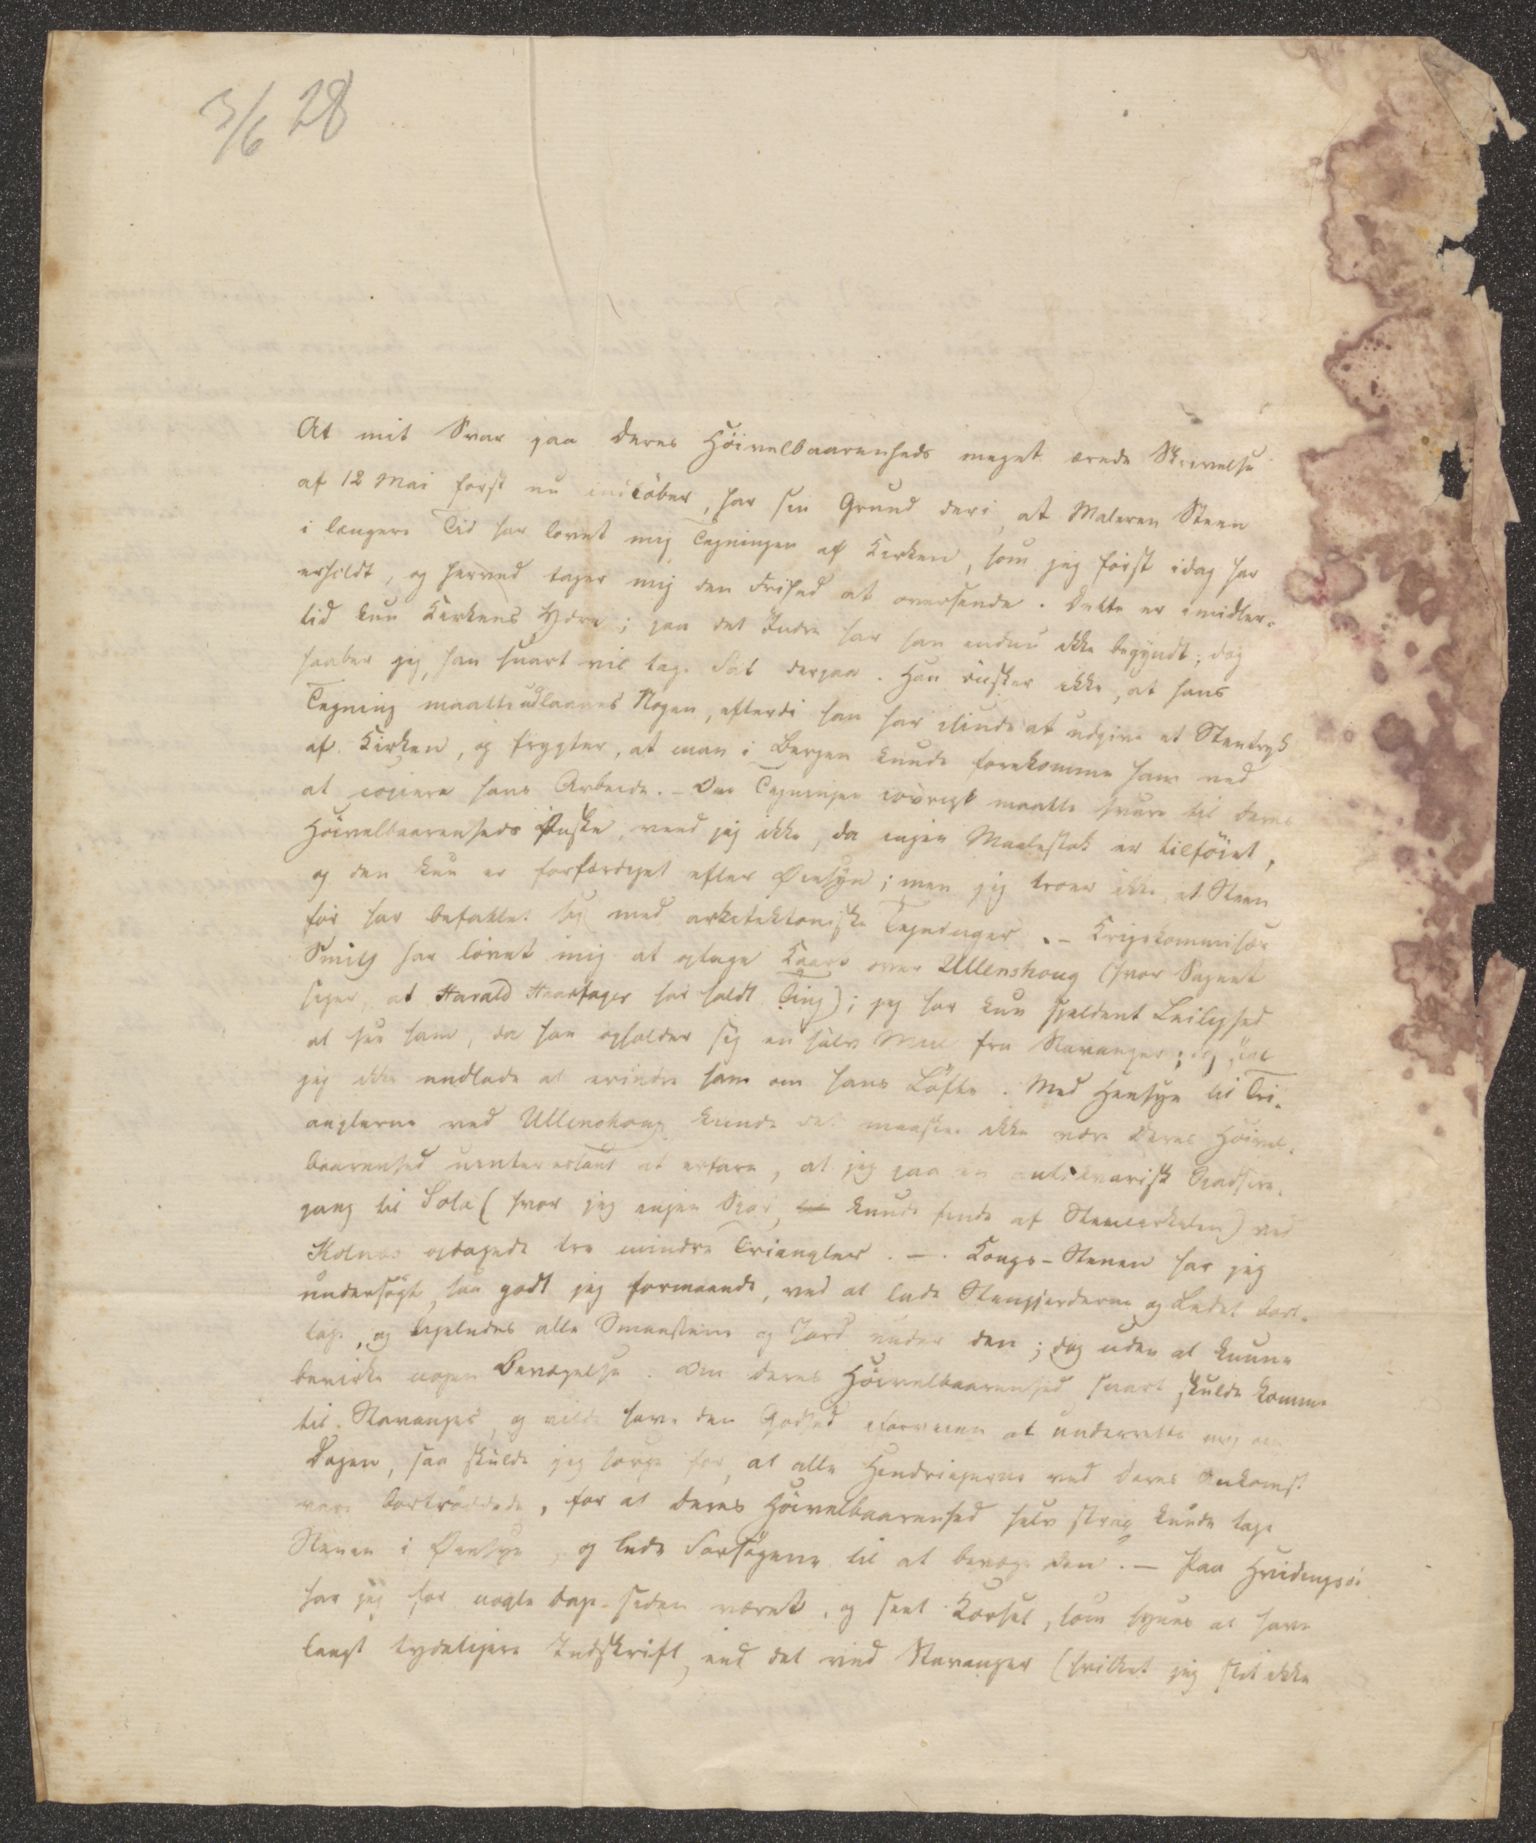 3/6 28
At mit Svar paa Deres Höivelbaarenheds meget ærede Skrivelse
af 12 Mai först nu indlöber, har sin Grund deri, at Maleren Steen
i længere Tid har lovet mig Tegningen af Kirken, som jeg först idag har
erholdt, og herved tager mig den Frihed at oversende. Dette er imidler-
tid kun Kirkens Ydre; paa det Indre har han endnu ikke begyndt; dog
haaber jeg, han snart vil tage fat derpaa. Han önsker ikke, at hans
Tegning maatte udlaanes Nogen, efterdi han har isinde at udgive et Steentryk
af Kirken, og frygter, at man i Bergen kunde forekomme ham ved
at copiere hans Arbeide. – Om Tegningen iövrigt maatte svare til Deres
Höivelbaarenheds Ønske, veed jeg ikke, da ingen Maalestok er tilföiet,
og den kun er forfærdiget efter Øiensyn; men jeg troer ikke, at Steen
för har befattet sig med arkitektoniske Tegninger. – Krigskommisær
Smith har lovet mig at optage Kaart over Ullenshoug (hvor Sagnet
siger, at Harald Haarfager har holdt Ting); jeg har kun sjeldent Leilighed
at see ham, da han opholder sig en halv Miil fra Stavanger; dog skal
jeg ikke undlade at erindre ham om hans Löfte. Med Hensyn til Tri-
anglerne ved Ullenshoug kunde det maaskee ikke være Deres Höivel-
baarenhed uinteressant at erfare, at jeg paa en antikvarisk Spadsere-
gang til Sola (hvor jeg ingen Spor kunde finde af Steencirkelen) ved
Kolnes opdagede tre mindre Triangler. –. Kongs-Stenen har jeg
undersögt, saa godt jeg formaaede, ved at lade Steengjerderne og Ledet bort-
tage, og ligeledes alle Smaastene og Jord under den; dog uden at kunne
bevirke nogen Bevægelse. Om Deres Höivelbaarenhed snart skulde komme
til Stavanger, og vilde have den Godhed iforveien at underrette mig om
Dagen, saa skulde jeg sörge for, at alle Hindringerne ved Deres Ankomst
vare bortryddede, for at Deres Höivelbaarenhed selv strax kunde tage
Stenen i Øiesyn, og lede Forsögene til at bevæge den. – Paa Hvidingsöe
har jeg for nogle Dage siden været, og seet Korset, som synes at have
langt tydeligere Indskrift, end det ved Stavanger (hvilket jeg slet ikke